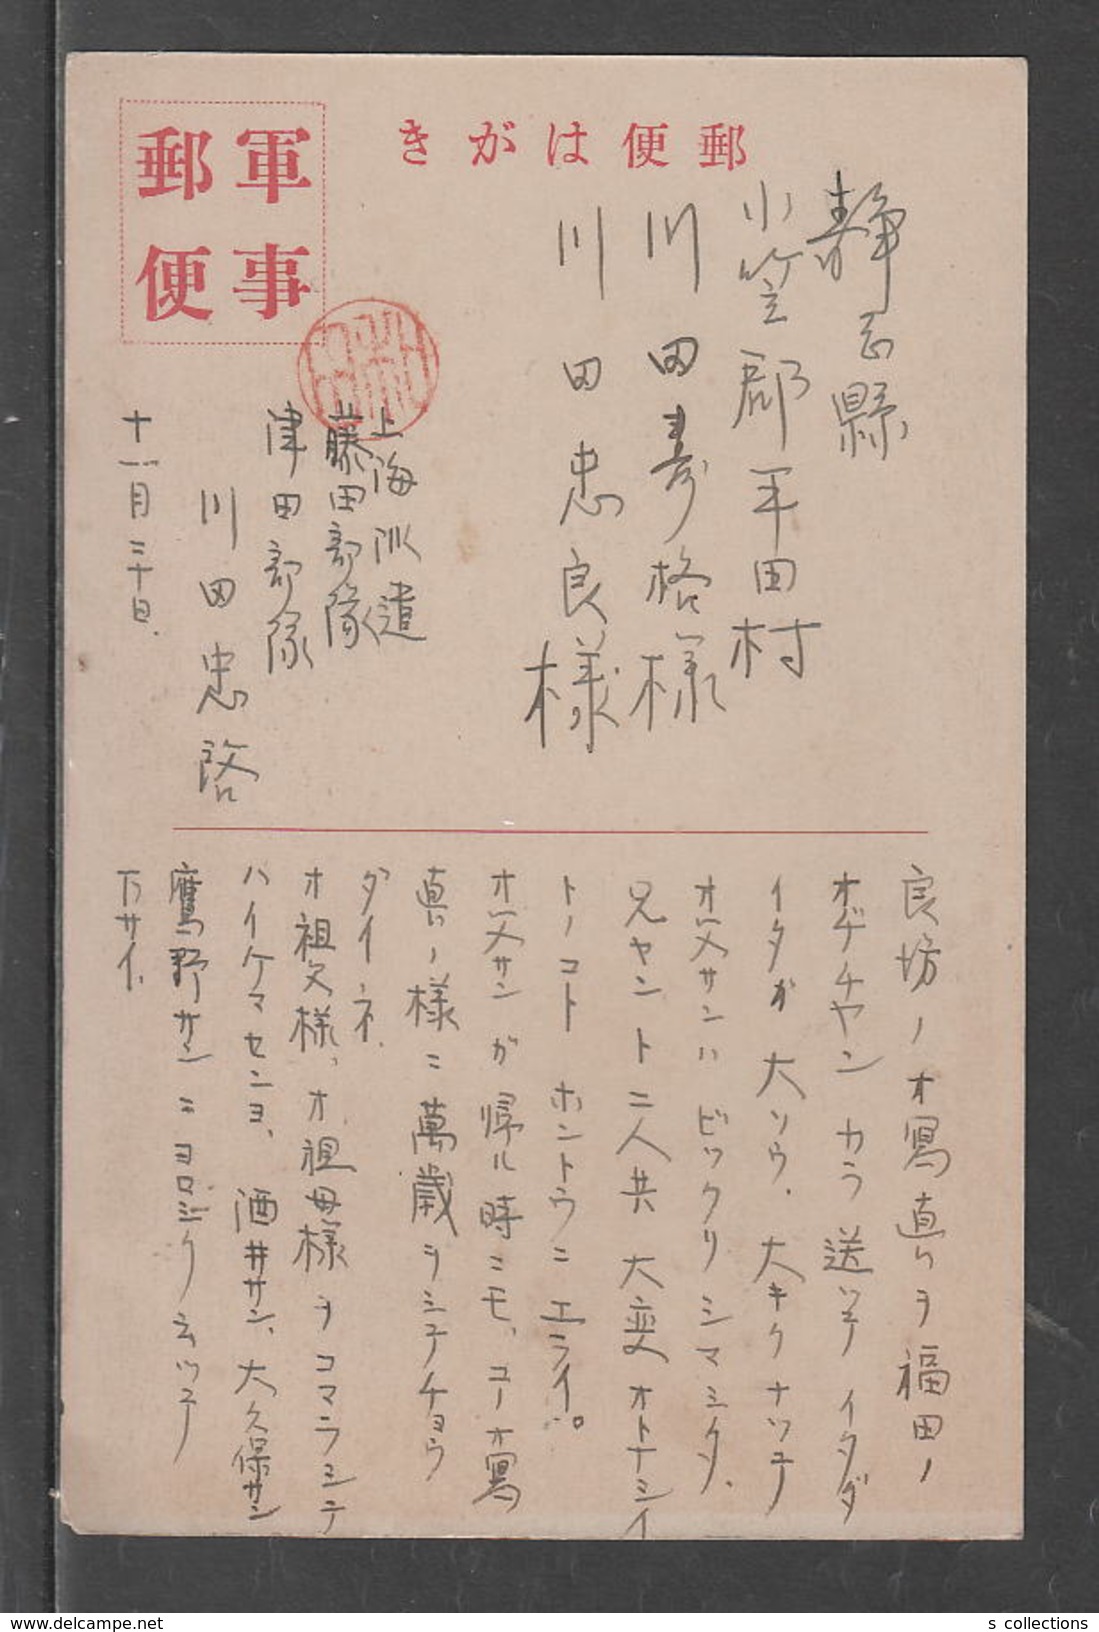 郵便はがき
軍事
郵便
静岡縣
小笠郡平田村
川田壽格様
川田忠良様
上海派遣
藤田部隊
津田部隊
川田忠啓
十一月三十日
良坊ノオ寫真ヲ福田ノ
オヂチヤンカラ送ツテイタダ
イタガ大ソウ、大キクナツテ
オ父サンハビックリシマシタ、
兄ヤント二人共大変オトナシイ
トノコトホントウニエライ。
オ父サンガ帰ル時ニモ、コノオ寫
真ノ様ニ萬歳ヲシテチョウ
ダイネ、
オ祖父様、オ祖母様ヲコマラシテ
ハイケマセンヨ、酒井サン、大久保サン
鷹野サンニヨロシク云ツテ
下サイ、
s collections